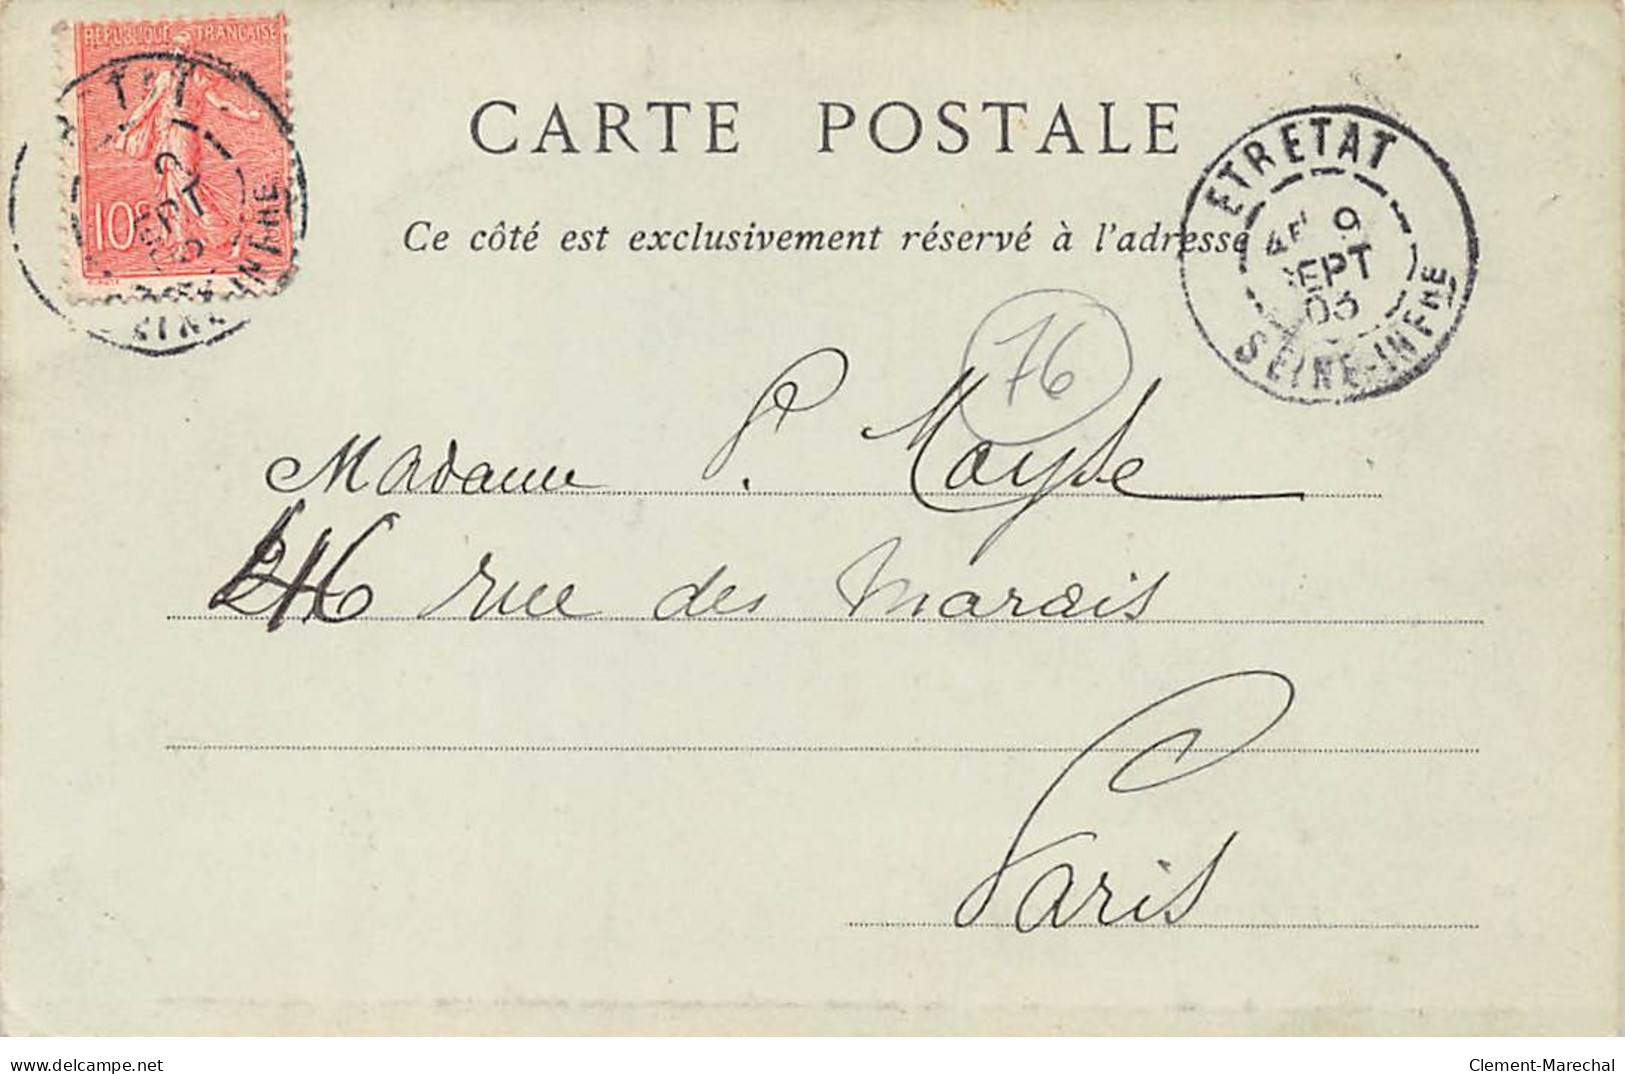 REPUBLIQUE FRANCAISE
10c
SEPT
SEINE-INFRE
CARTE POSTALE
Ce côté est exclusivement réservé à l'adresse
ETRETAT
9
SEPT
03
SEINE-INFRE
76
Madame P. Mayse
rue des Marais
Paris
delcampe.net
Clement-Marechal